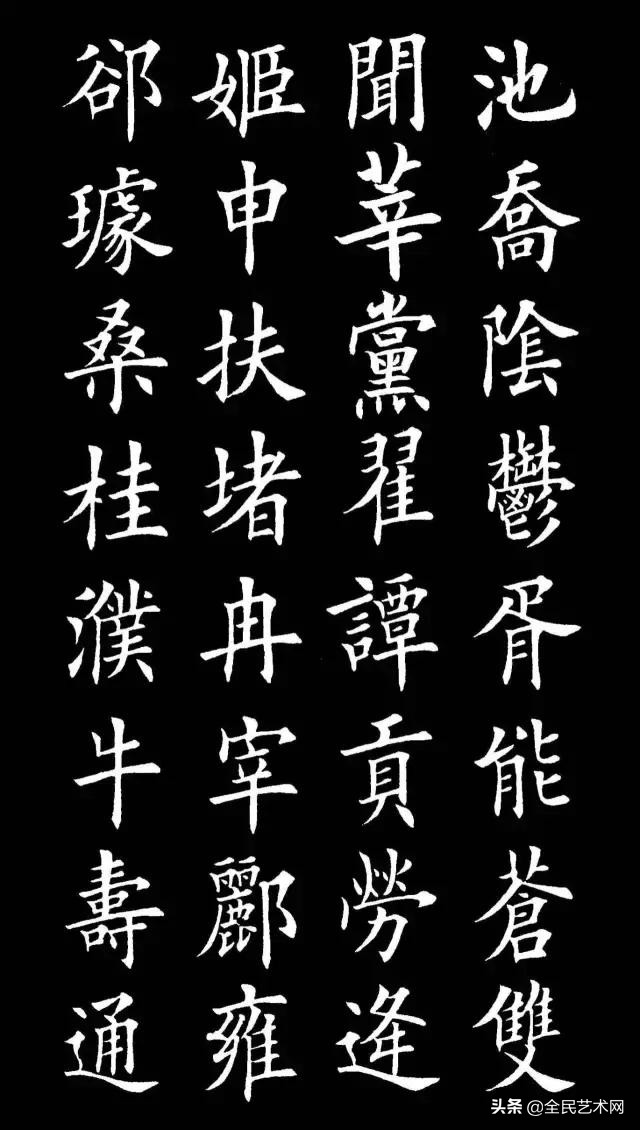 池喬陰鬱胥能蒼雙
聞莘黨翟譚貢勞逄
姬申扶堵冉宰酈雍
郤璩桑桂濮牛壽通
头条 @全民艺术网